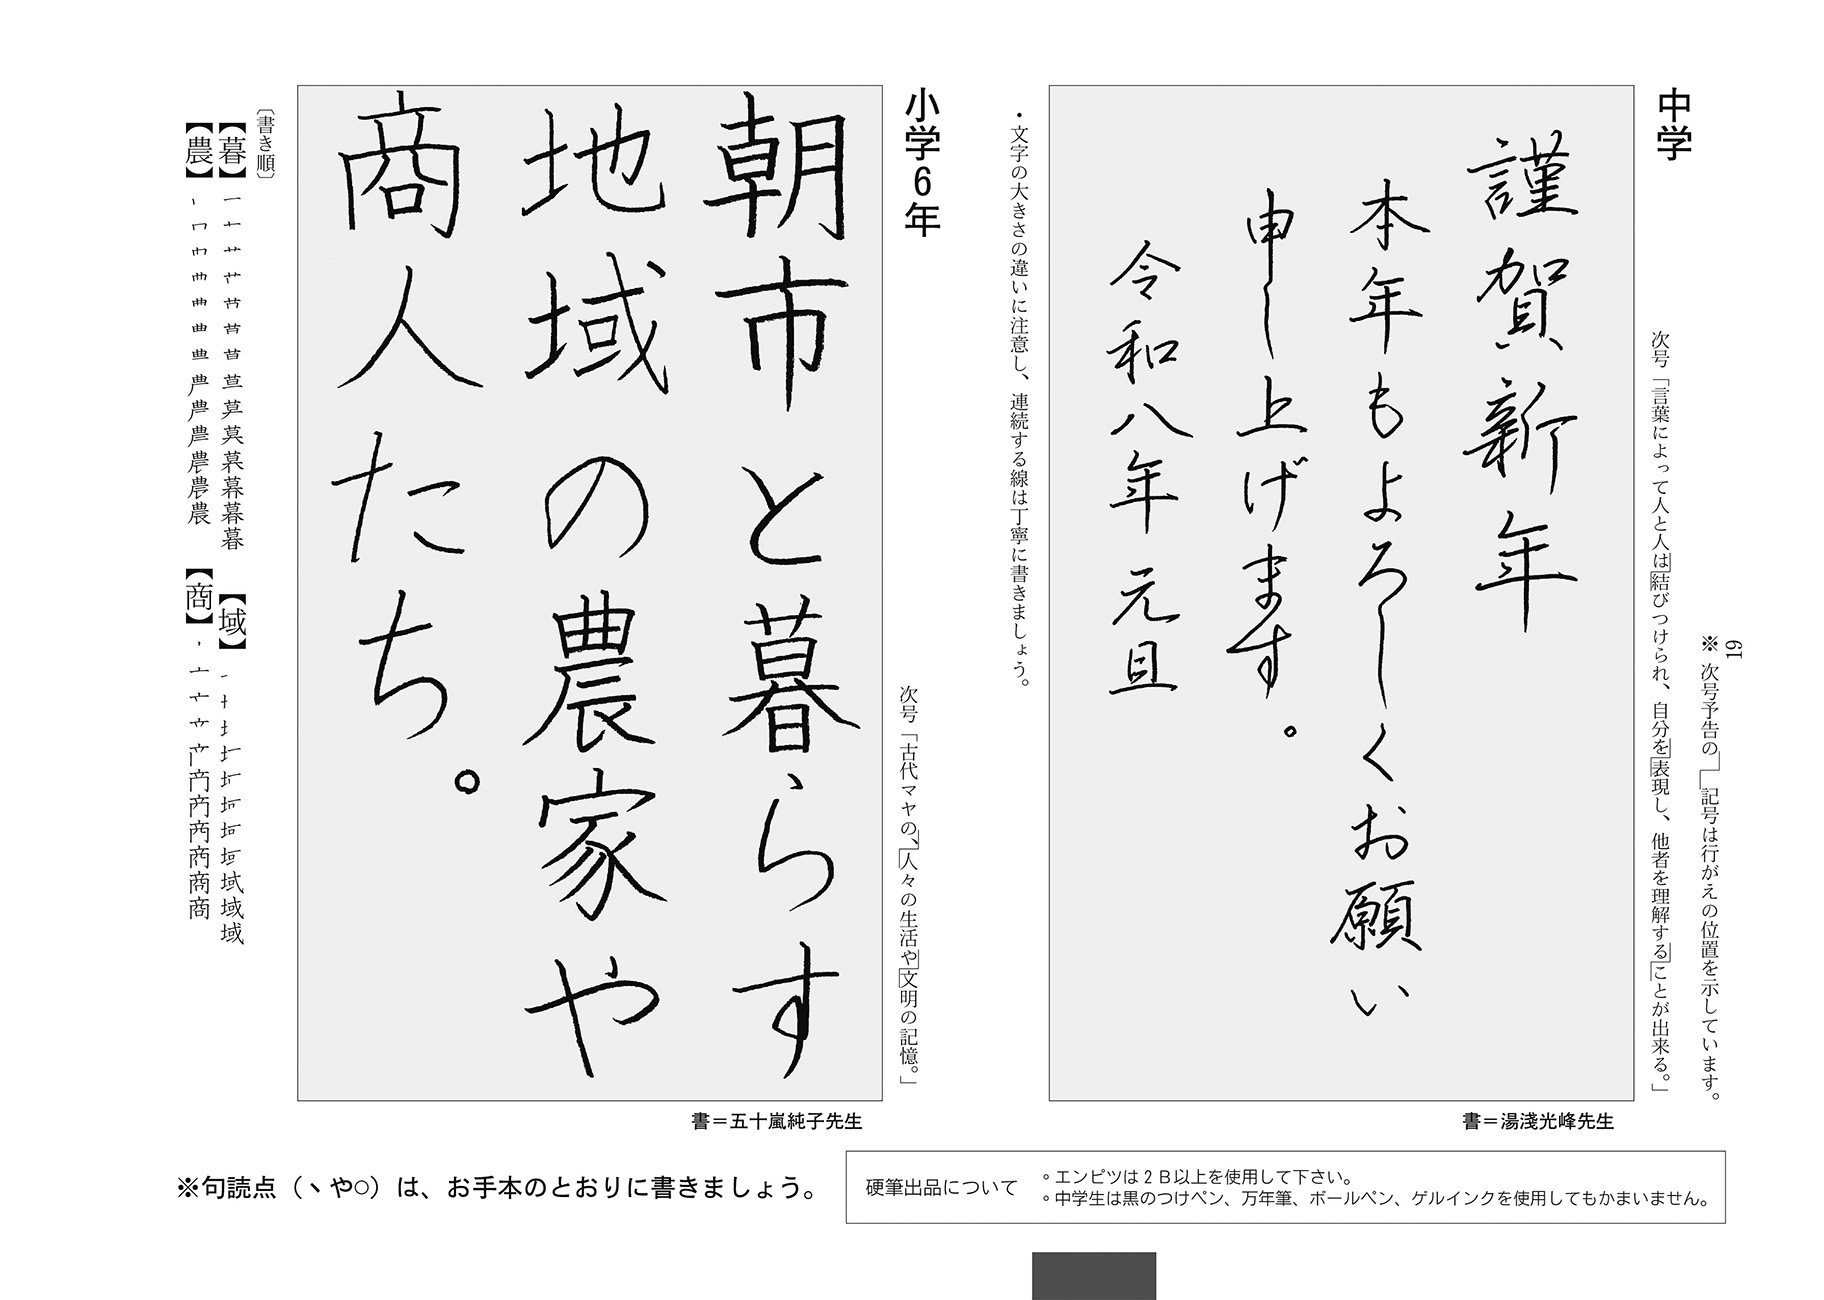 19
※次号予告の」「記号は行がえの位置を示しています。
中学
次号「言葉によって人と人は」「結びつけられ、自分を」「表現し、他者を理解する」「ことが出来る。」
謹賀新年
本年もよろしくお願い
申し上げます。
令和八年元旦
・文字の大きさの違いに注意し、連続する線は丁寧に書きましょう。
書＝湯淺光峰先生
小学6年
次号「古代マヤの、」「人々の生活や」「文明の記憶。」
朝市と暮らす
地域の農家や
商人たち。
書＝五十嵐純子先生
〔書き順〕
【暮】
【域】
【農】
【商】
※句読点（、や○）は、お手本のとおりに書きましょう。
硬筆出品について
○エンピツは２Ｂ以上を使用して下さい。
○中学生は黒のつけペン、万年筆、ボールペン、ゲルインクを使用してもかまいません。